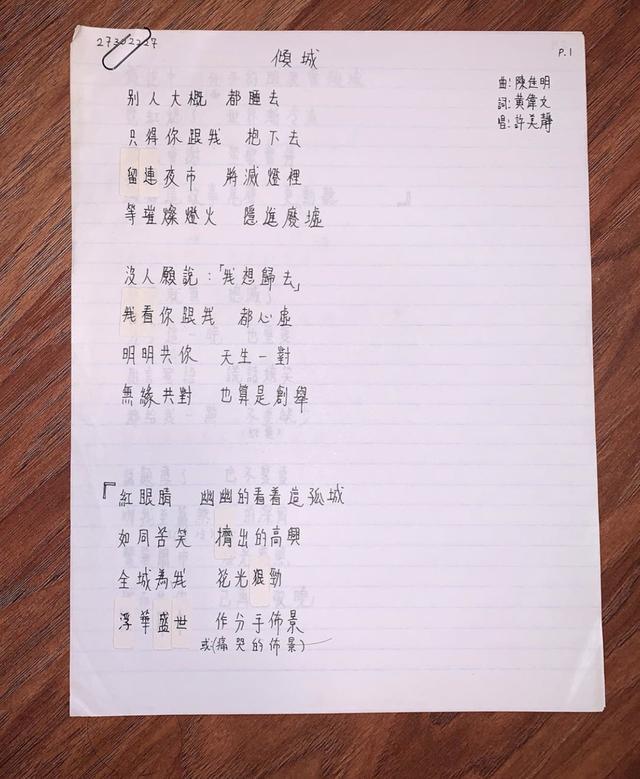 27302227
P.1
傾城
曲:陳佳明
詞:黃偉文
唱:許美靜
別人大概 都睡去
只得你跟我 抱下去
留連夜市 將滅燈裡
等璀燦燈火 隱進廢墟
沒人願說:「我想歸去」
我看你跟我 都心虛
明明共你 天生一對
無緣共對 也算是創舉
『紅眼睛 幽幽的看着這孤城
如同苦笑 擠出的高興
全城為我 花光狠勁
浮華盛世 作分手佈景
或(痛哭的佈景)